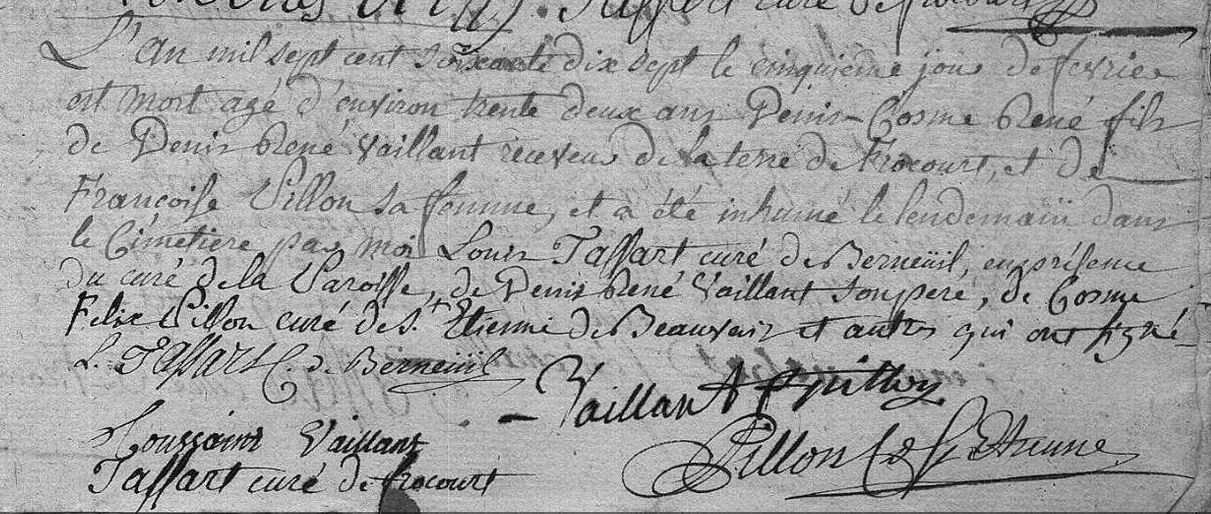 Taffart curé de frocourt
L'An mil sept cent Soixante dix sept le cinquieme jour de fevrier
est mort agé d'environ trente deux ans Denis Cosme René fils
de Denis René Vaillant receveur de la terre de frocourt, et de
Françoise Pillon sa femme, et a été inhumé le lendemain dans
le Cimetiere par moi Louis Taffart curé de Berneüil, en presence
du curé de la Paroisse, de Denis René Vaillant son pere, de Cosme
Felix Pillon curé de St Etienne de Beauvais et autres qui ont signé
L. Taffart C. de Berneüil
Vaillant
Toussaint Vaillant
Pillon C. de St Etienne
Taffart curé de frocourt